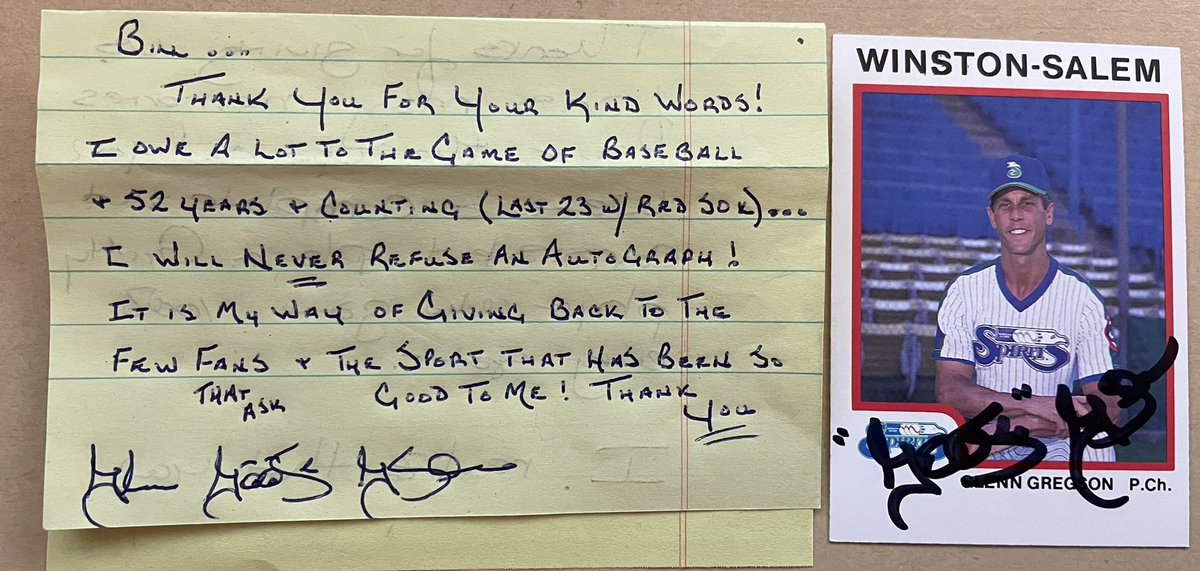 Bill ...
Thank You For Your Kind Words!
I owe A Lot To The Game of Baseball
+ 52 years + Counting (Last 23 w/ Red Sox)...
I Will Never Refuse An Autograph!
It is My Way of Giving Back To The
Few Fans + The Sport That Has Been So
That Ask
Good To Me! Thank You
Glenn
WINSTON-SALEM
SPIRITS
SPIRITS
GLENN GREGSON P.Ch.